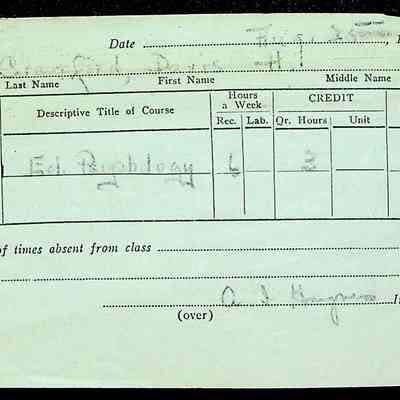 Date Aug.
Crawford, Davis H.
Last Name First Name Middle Name
Descriptive Title of Course Hours a Week CREDIT
Rec. Lab. Qr. Hours Unit
Ed. Psychology 6 3
of times absent from class
A. I.
(over)